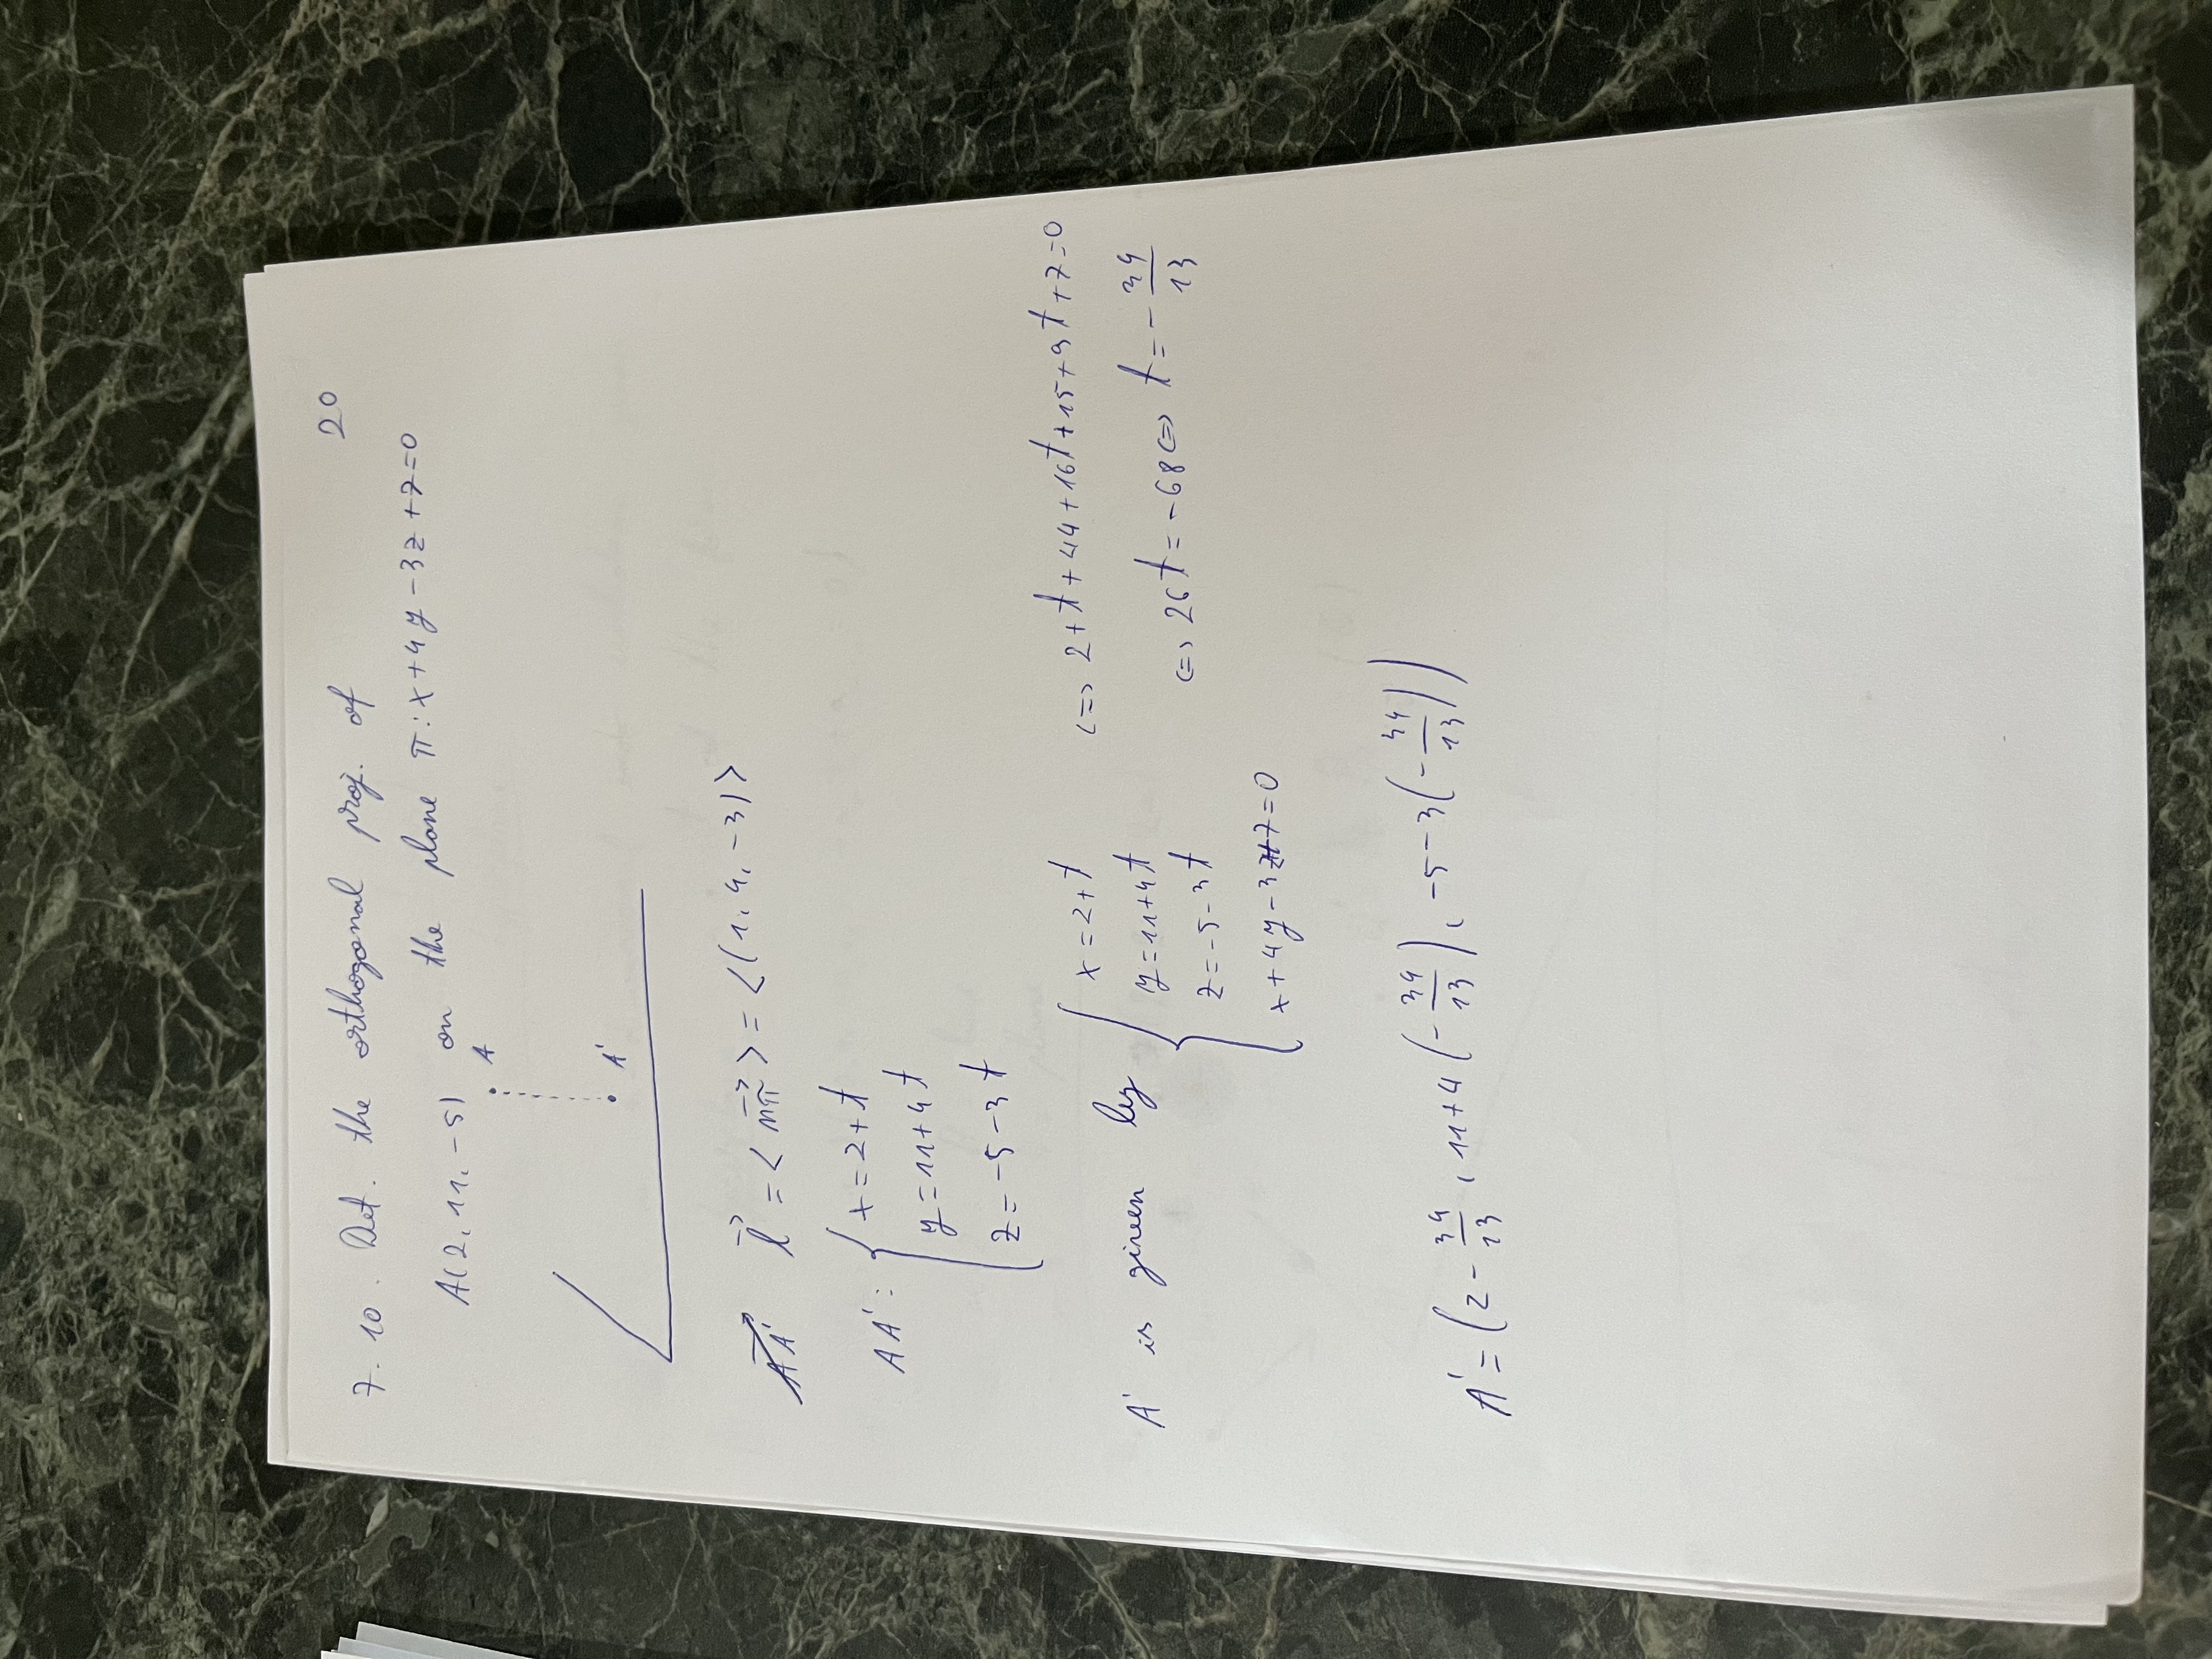 20
7.10. Det. the orthogonal proj. of
A(2, 11, -5) on the plane π: x+4y-3z+7=0
A
A'
AA' l = < nπ > = <(1, 4, -3)>
AA': { x=2+t
y=11+4t
z=-5-3t
A' is given by { x=2+t
y=11+4t
z=-5-3t
x+4y-3z+7=0
<=> 2+t+44+16t+15+9t+7=0
<=> 26t=-68 <=> t=-34/13
A'=(2-34/13, 11+4(-34/13), -5-3(-34/13))